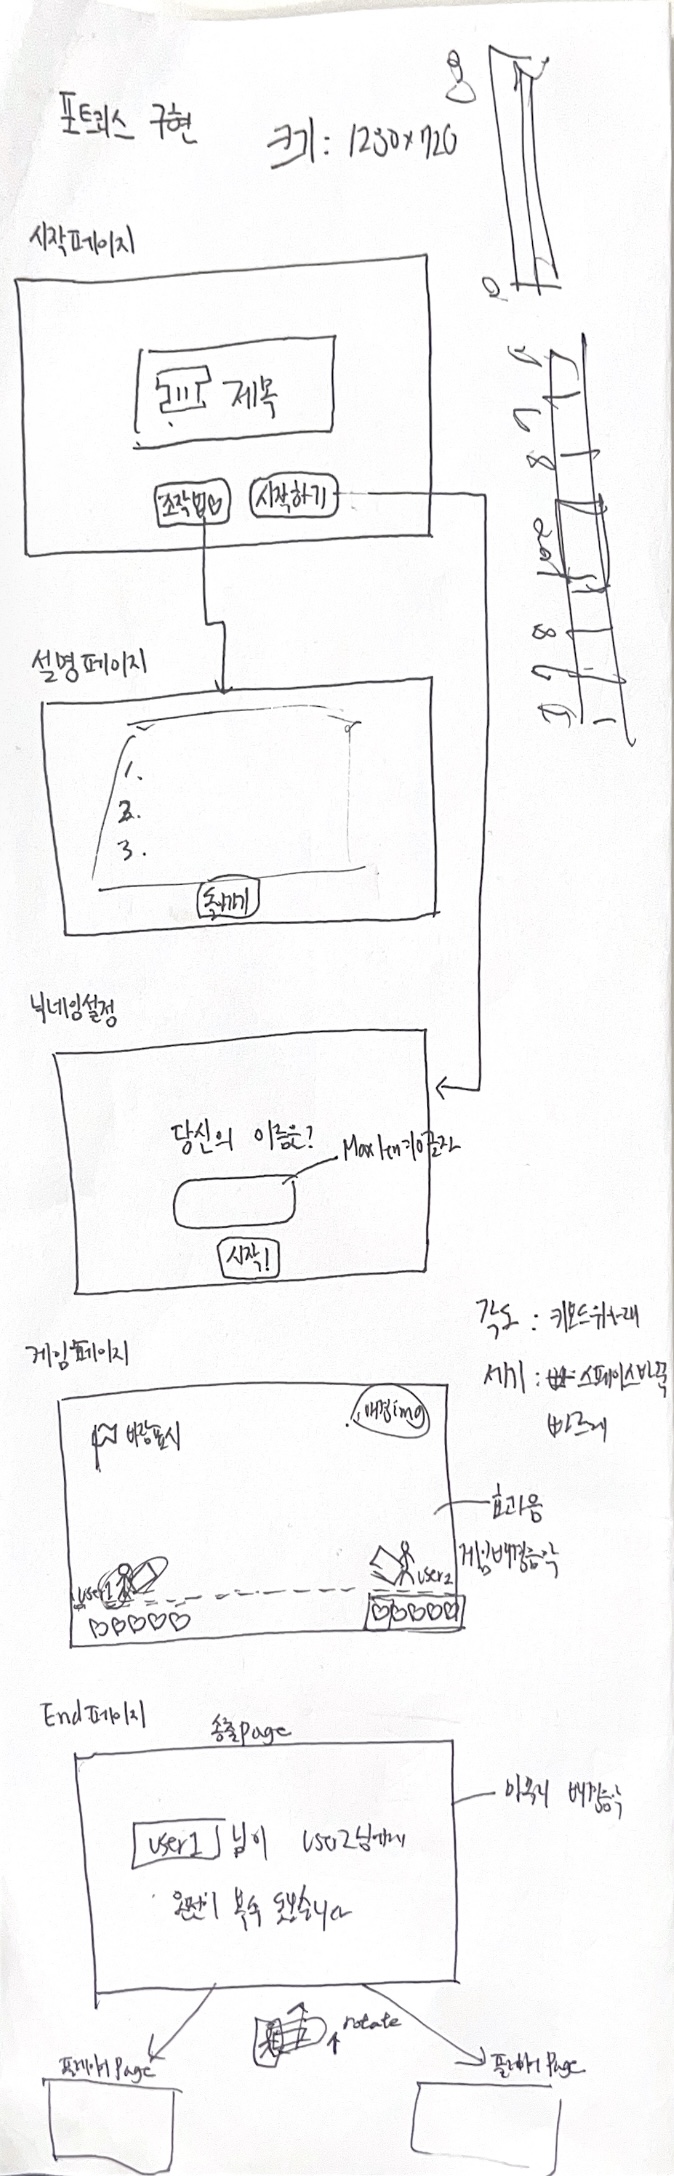 포트리스 구현
크기: 1280×720
시작페이지
제목
조작법
시작하기
설명페이지
1.
2.
3.
돌아가기
닉네임설정
당신의 이름은?
시작!
각도 : 키보드위아래
게임페이지
세기 : 스페이스바꾹
바람표시
배경img
효과음
게임배경음악
user1
user2
End페이지
송출page
배경음악
user1 님이 user2님에게
완전히 복수
rotate
플레이어 page
플레이어 page